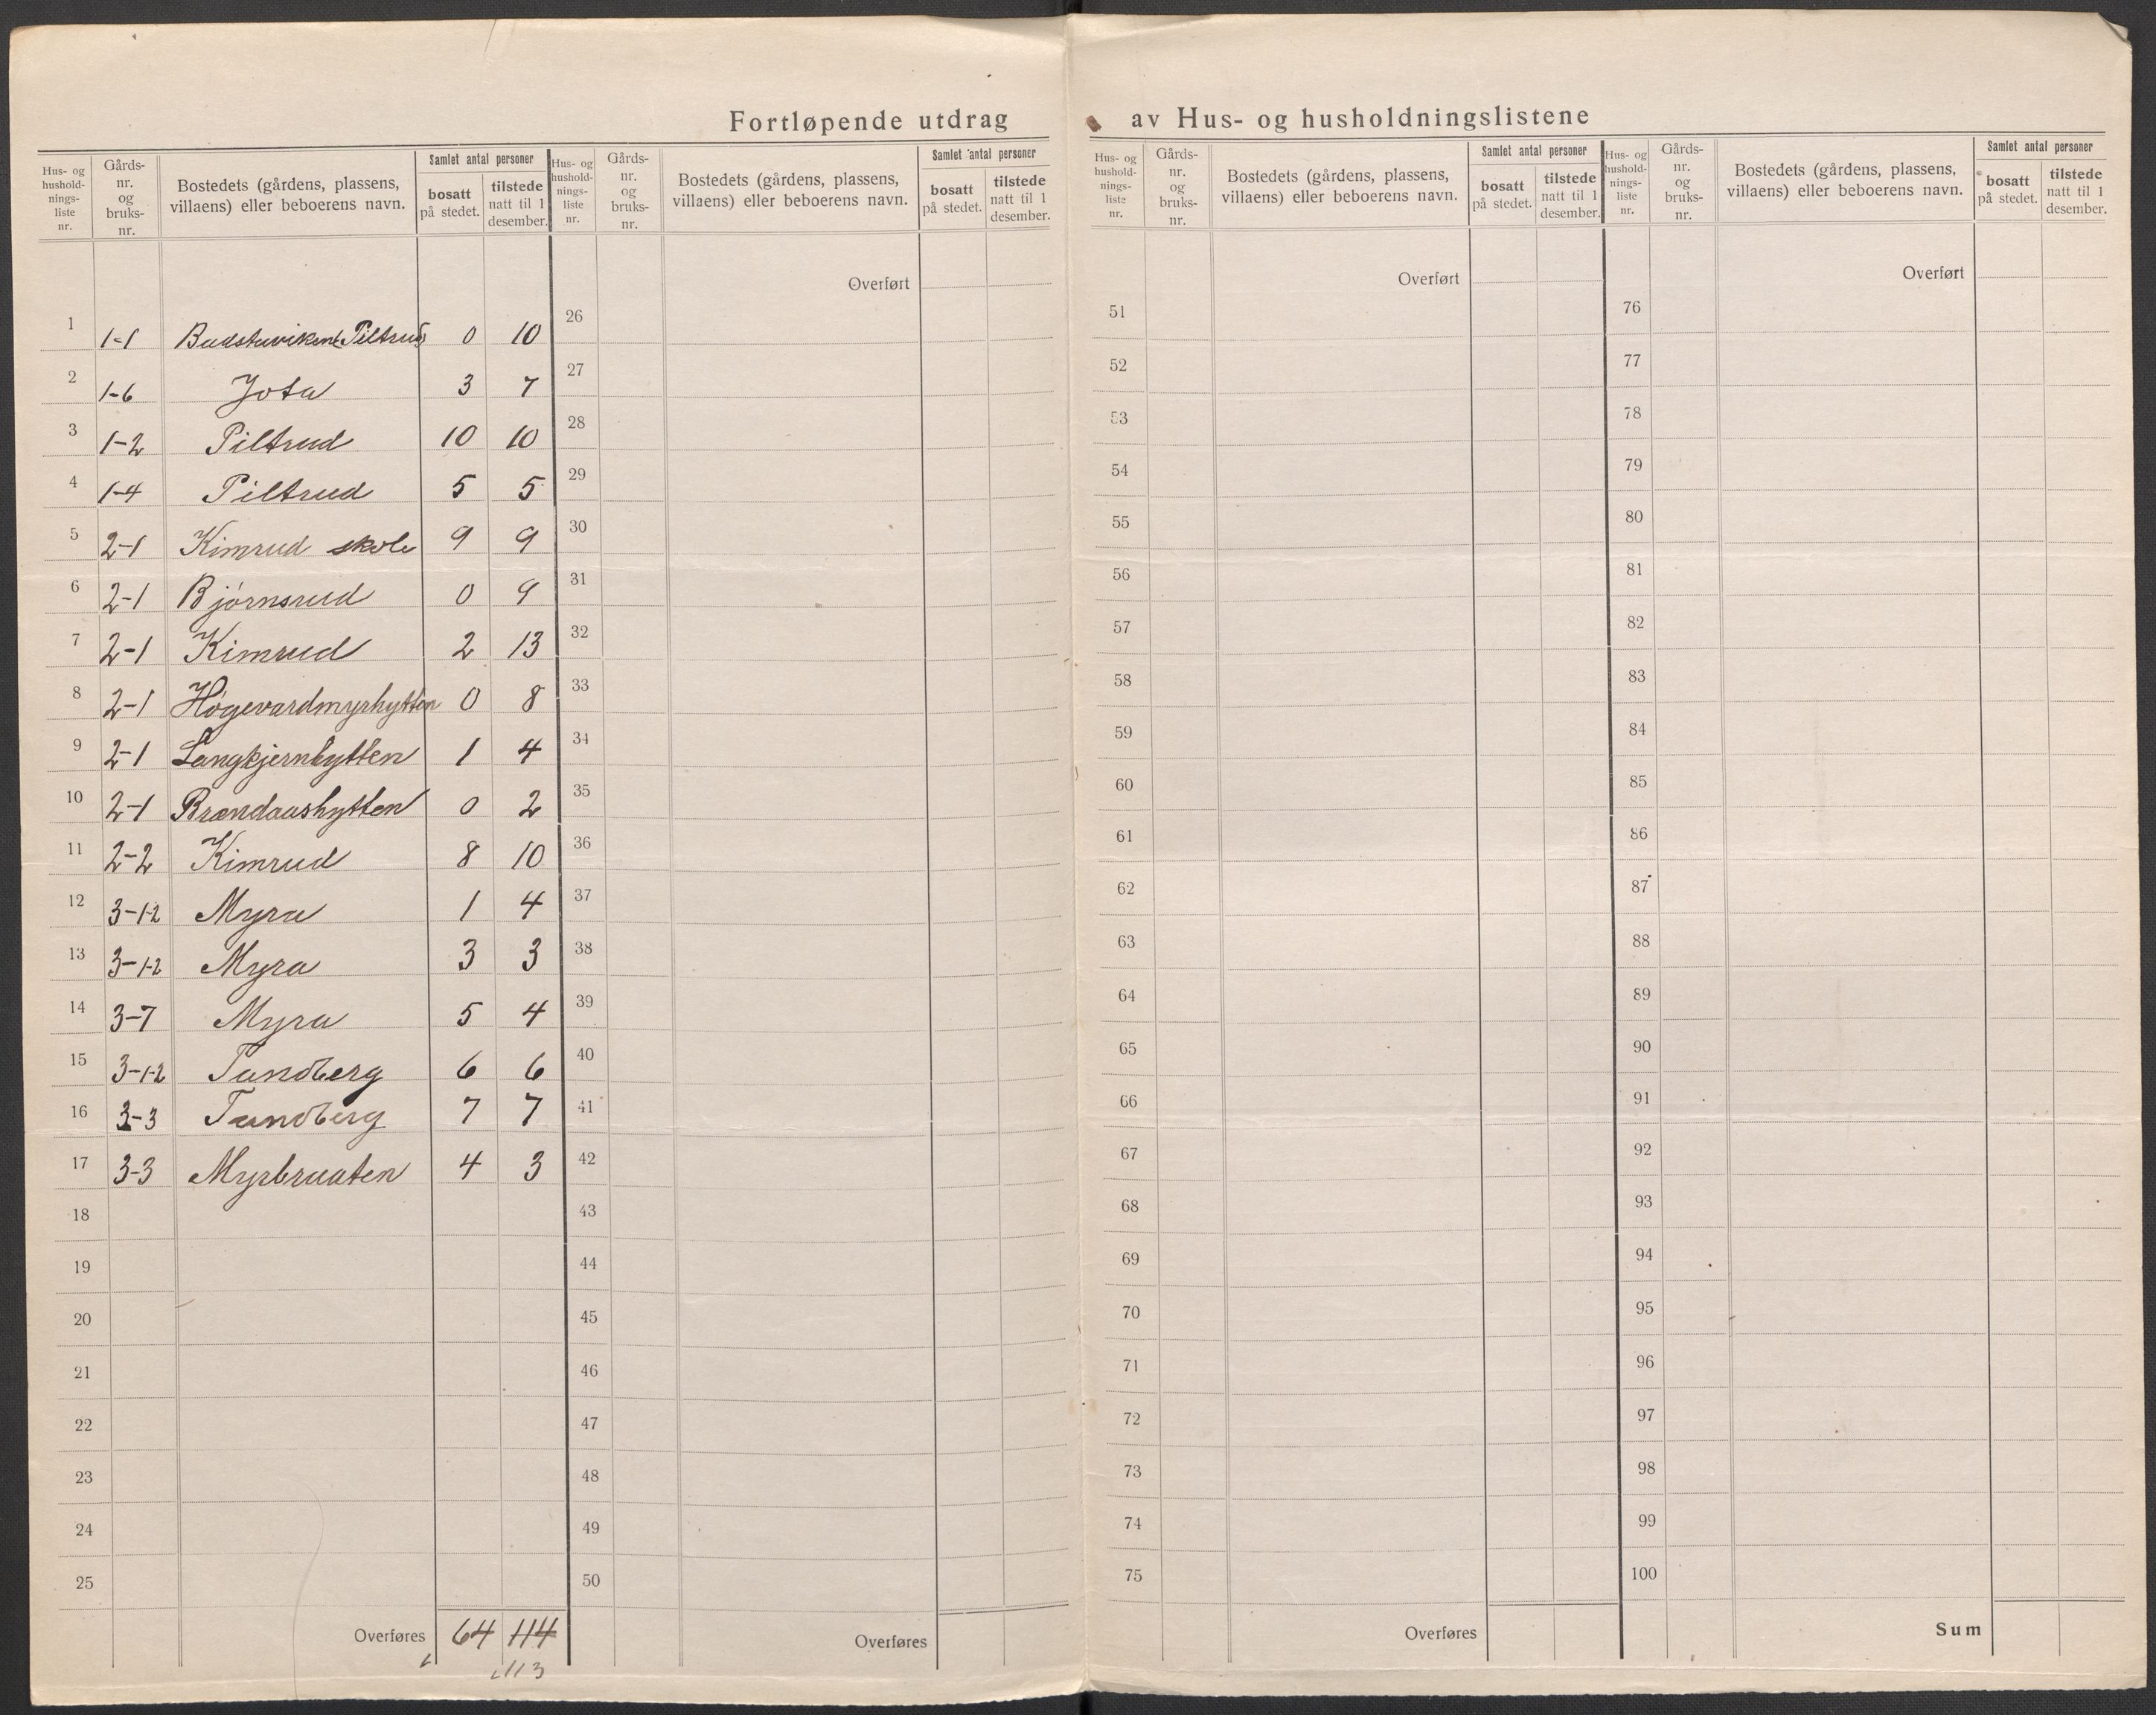 Fortløpende utdrag av Hus- og husholdningslistene
Hus- og hushold- nings- liste nr. | Gårds- nr. og bruks- nr. | Bostedets (gårdens, plassens, villaens) eller beboerens navn. | Samlet antal personer | bosatt på stedet. | tilstede natt til 1 desember.
Hus- og hushold- nings- liste nr. | Gårds- nr. og bruks- nr. | Bostedets (gårdens, plassens, villaens) eller beboerens navn. | Samlet antal personer | bosatt på stedet. | tilstede natt til 1 desember.
Hus- og hushold- nings- liste nr. | Gårds- nr. og bruks- nr. | Bostedets (gårdens, plassens, villaens) eller beboerens navn. | Samlet antal personer | bosatt på stedet. | tilstede natt til 1 desember.
Hus- og hushold- nings- liste nr. | Gårds- nr. og bruks- nr. | Bostedets (gårdens, plassens, villaens) eller beboerens navn. | Samlet antal personer | bosatt på stedet. | tilstede natt til 1 desember.
Overført Overført Overført
1 1-1 Badstuviken (Piltrud) 0 10 26 51 76
2 1-6 Jota 3 7 27 52 77
3 1-2 Piltrud 10 10 28 53 78
4 1-4 Piltrud 5 5 29 54 79
5 2-1 Kimrud skole 9 9 30 55 80
6 2-1 Bjørnsrud 0 9 31 56 81
7 2-1 Kimrud 2 13 32 57 82
8 2-1 Høgevardmyrhytten 0 8 33 58 83
9 2-1 Langkjernhytten 1 4 34 59 84
10 2-1 Brændaashytten 0 2 35 60 85
11 2-2 Kimrud 8 10 36 61 86
12 3-1-2 Myra 1 4 37 62 87
13 3-1-2 Myra 3 3 38 63 88
14 3-7 Myra 5 4 39 64 89
15 3-1-2 Tandberg 6 6 40 65 90
16 3-3 Tandberg 7 7 41 66 91
17 3-3 Myrbraaten 4 3 42 67 92
18 43 68 93
19 44 69 94
20 45 70 95
21 46 71 96
22 47 72 97
23 48 73 98
24 49 74 99
25 50 75 100
Overføres 64 114 Overføres Overføres Sum
113